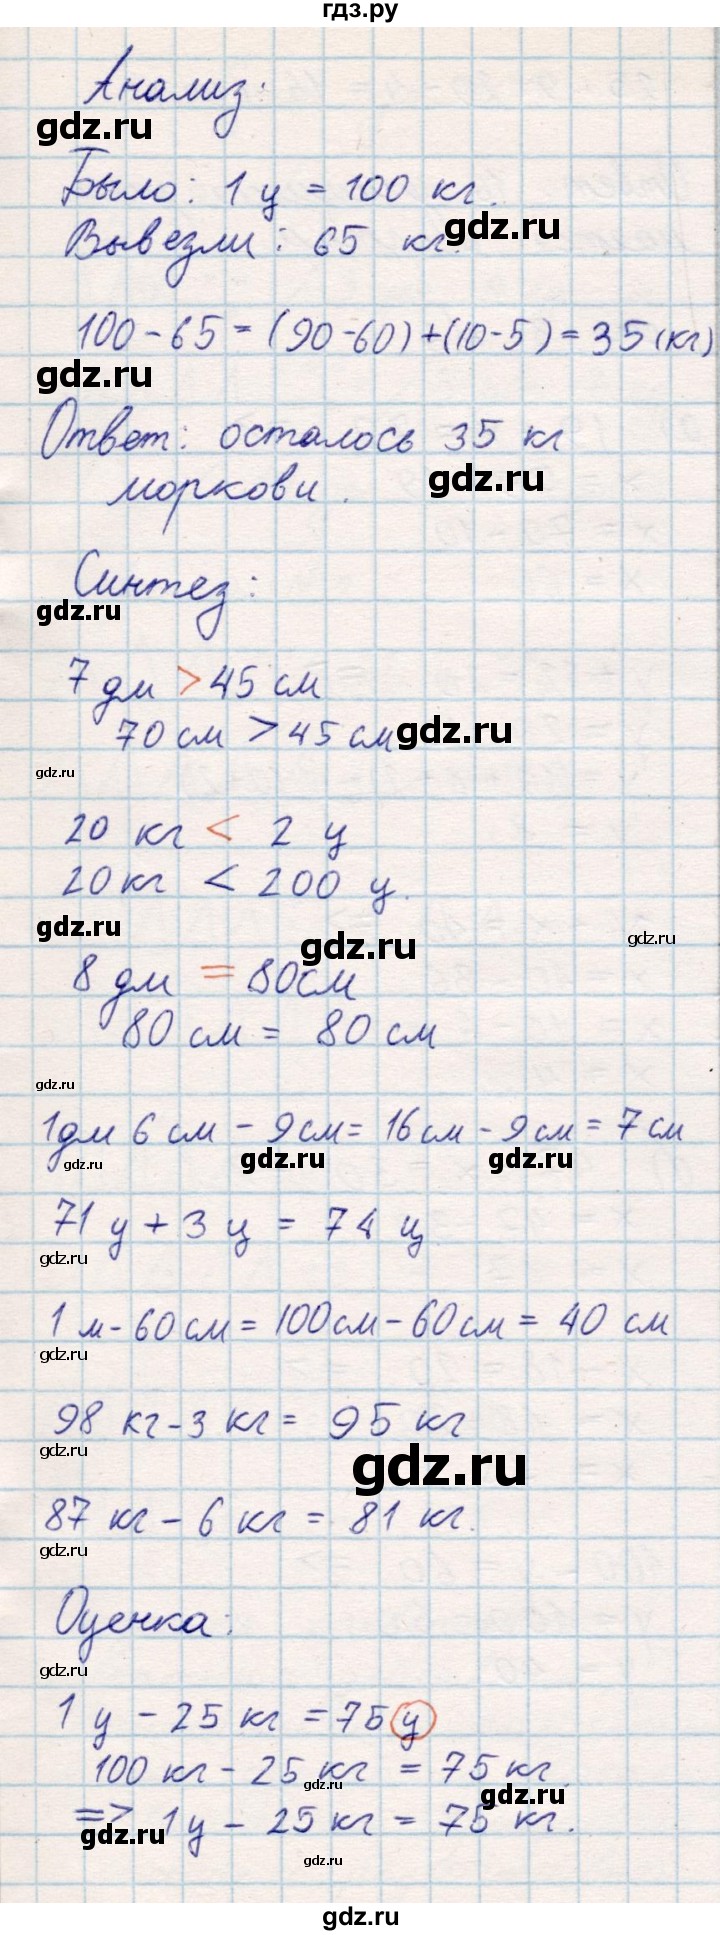 гдз.ру
Анализ:
gdz.ru
Было: 1 ц = 100 кг.
gdz.ru
Вывезли: 65 кг.
100 - 65 = (90 - 60) + (10 - 5) = 35 (кг)
gdz.ru
Ответ: осталось 35 кг
моркови.
gdz.ru
Синтез:
gdz.ru
7 дм > 45 см
70 см > 45 см
gdz.ru
gdz.ru
20 кг < 2 ц
20 кг < 200 ц.
gdz.ru
gdz.ru
gdz.ru
8 дм = 80 см
80 см = 80 см
gdz.ru
1 дм 6 см - 9 см = 16 см - 9 см = 7 см
gdz.ru
gdz.ru
gdz.ru
71 ц + 3 ц = 74 ц
gdz.ru
1 м - 60 см = 100 см - 60 см = 40 см
gdz.ru
98 кг - 3 кг = 95 кг
gdz.ru
gdz.ru
87 кг - 6 кг = 81 кг.
gdz.ru
Оценка:
gdz.ru
1 ц - 25 кг = 75 ц
100 кг - 25 кг = 75 кг.
gdz.ru
gdz.ru
=> 1 ц - 25 кг = 75 кг.
gdz.ru
gdz.ru
gdz.ru